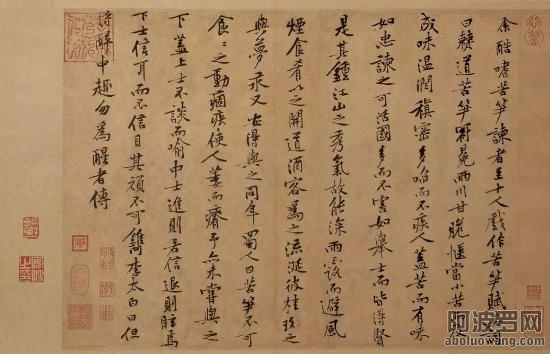 余酷嗜苦笋諫者至十人戲作苦笋賦其詞
曰僰道苦笋冠冕兩川甘脆愜當小苦而反
成味溫潤稹密多啗而不疾人蓋苦而有味
如忠諫之可活國多而不害如舉士而皆得賢
是其鍾江山之秀氣故能深雨露而避風
煙食肴以之開道酒客為之流涎彼桂玫之
與夢汞又安得與之同年蜀人曰苦笋不可
食〻之動痼疾使人萎而瘠予亦未嘗與之
下蓋上士不談而喻中士進則若信退則眩焉
下士信耳而不信目其頑不可鐫李太白曰但
得醉中趣勿為醒者傳
阿波罗网
aboluowang.com